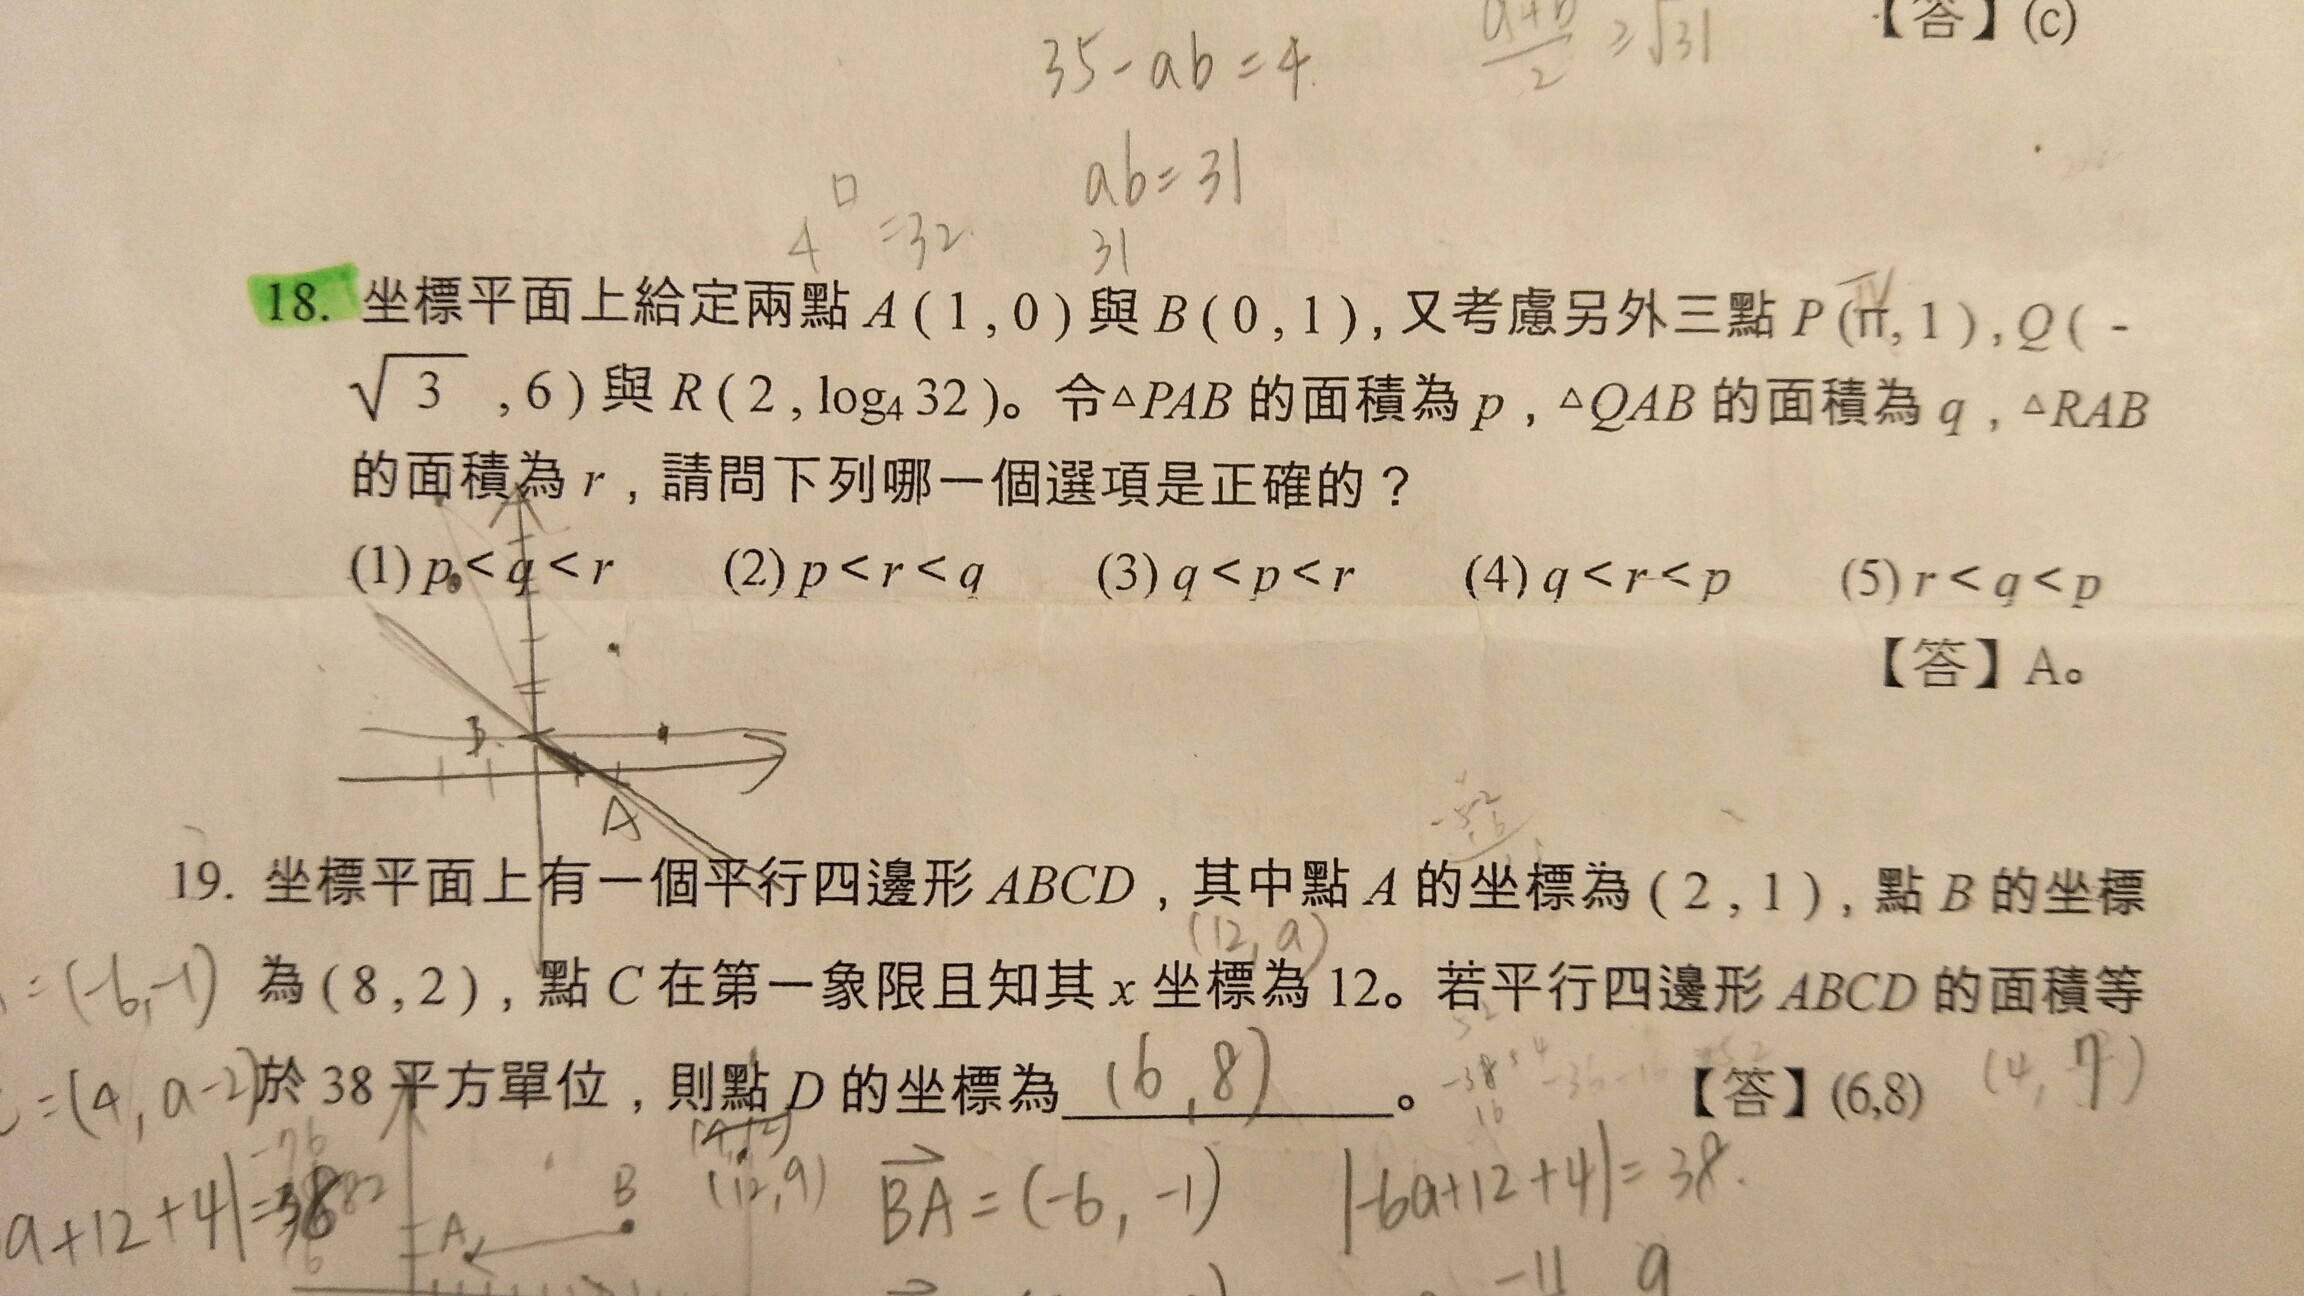 【答】(c)
35-ab=4
a+b/2 ≥ √31
ab=31
4^□=32
31
18. 坐標平面上給定兩點 A ( 1 , 0 ) 與 B ( 0 , 1 ) , 又考慮另外三點 P (π, 1 ) , Q ( -
√3 , 6 ) 與 R ( 2 , log₄ 32 )。令△PAB 的面積為 p , △QAB 的面積為 q , △RAB
的面積為 r , 請問下列哪一個選項是正確的？
(1) p < q < r (2) p < r < q (3) q < p < r (4) q < r < p (5) r < q < p
【答】A。
B
A
19. 坐標平面上有一個平行四邊形 ABCD , 其中點 A 的坐標為 ( 2 , 1 ) , 點 B 的坐標
(12, a)
=(-6,-1) 為 ( 8 , 2 ) , 點 C 在第一象限且知其 x 坐標為 12。若平行四邊形 ABCD 的面積等
=(4, a-2) 於 38 平方單位 , 則點 D 的坐標為 (6,8) 。 【答】(6,8) (4, 7)
a+12+4|=38
A B (12,9) BA=(-6,-1) |-6a+12+4|=38.
-11 9